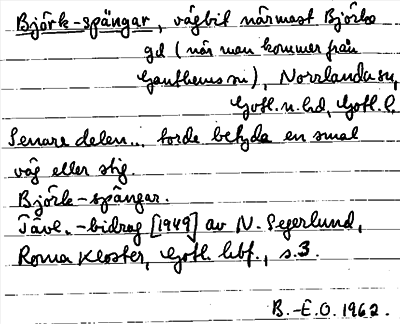 Björk-spångar, vägbit närmast Björke
gd (när man kommer från
Ganthems sn), Norrlanda sn,
Gotl. n. hd, Gotl. l.
Senare delen... torde betyda en smal
väg eller stig.
Björk-spångar.
Tävl.-bidrag [1949] av N. Segerlund,
Roma Kloster, Gotl. hbf., s. 3.
B.-E.O. 1962.